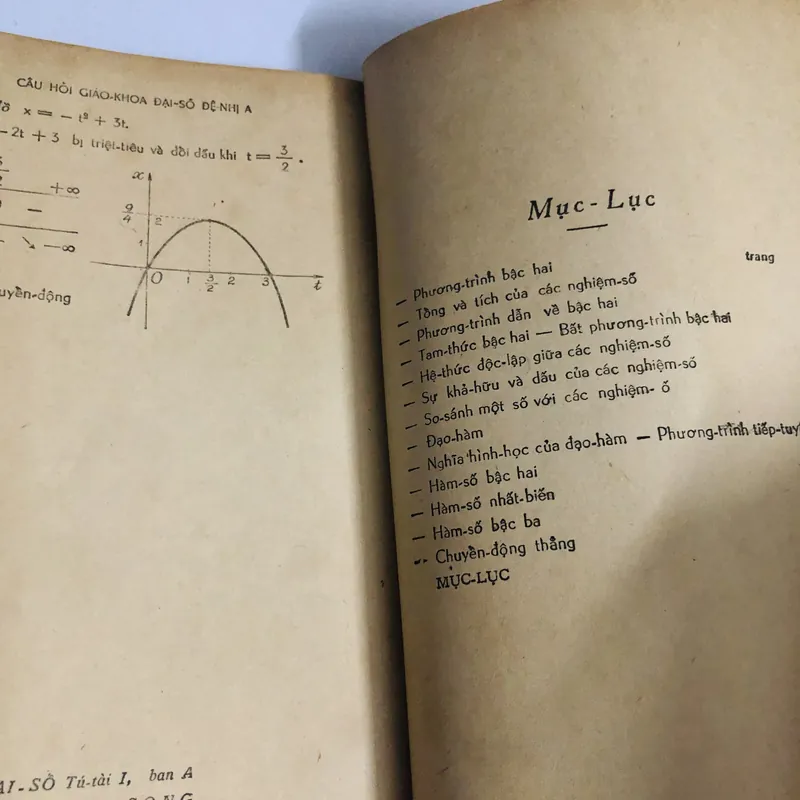 CÂU HỎI GIÁO-KHOA ĐẠI-SỐ ĐỆ-NHỊ A
x = − t² + 3t.
− 2t + 3 bị triệt-tiêu và đổi dấu khi t = 3/2 .
+∞
−
↘ −∞
x
9/4
2
1
O
1
3/2
2
3
t
Tú-tài I, ban A
Mục - Lục
trang
— Phương-trình bậc hai
— Tổng và tích của các nghiệm-số
— Phương-trình dẫn về bậc hai
— Tam-thức bậc hai — Bất phương-trình bậc hai
— Hệ-thức độc-lập giữa các nghiệm-số
— Sự khả-hữu và dấu của các nghiệm-số
— So-sánh một số với các nghiệm- ố
— Đạo-hàm
— Nghĩa hình-học của đạo-hàm — Phương-trình tiếp-tuy
— Hàm-số bậc hai
— Hàm-số nhất-biến
— Hàm-số bậc ba
— Chuyển-động thẳng
MỤC-LỤC